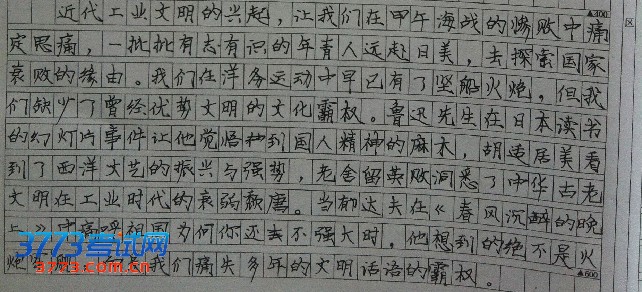 近代工业文明的兴起，让我们在甲午海战的惨败中痛
定思痛，一批批有志有识的年青人远赴日美，去探索国家
衰败的缘由。我们在洋务运动中早已有了坚船火炮，但我
们缺少了曾经优势文明的文化霸权。鲁迅先生在日本读书
的幻灯片事件让他觉悟到国人精神的麻木，胡适居美看
到了西洋文艺的振兴与强势，老舍留英败洞悉了中华古老
文明在工业时代的衰弱颓唐。当郁达夫在《春风沉醉的晚
上》中高呼祖国为何你还不强大时，他想到的绝不是火
炮，我们痛失多年的文明话语的霸权。
▲400
▲600
区
3773考试网
www.3773.com.cn